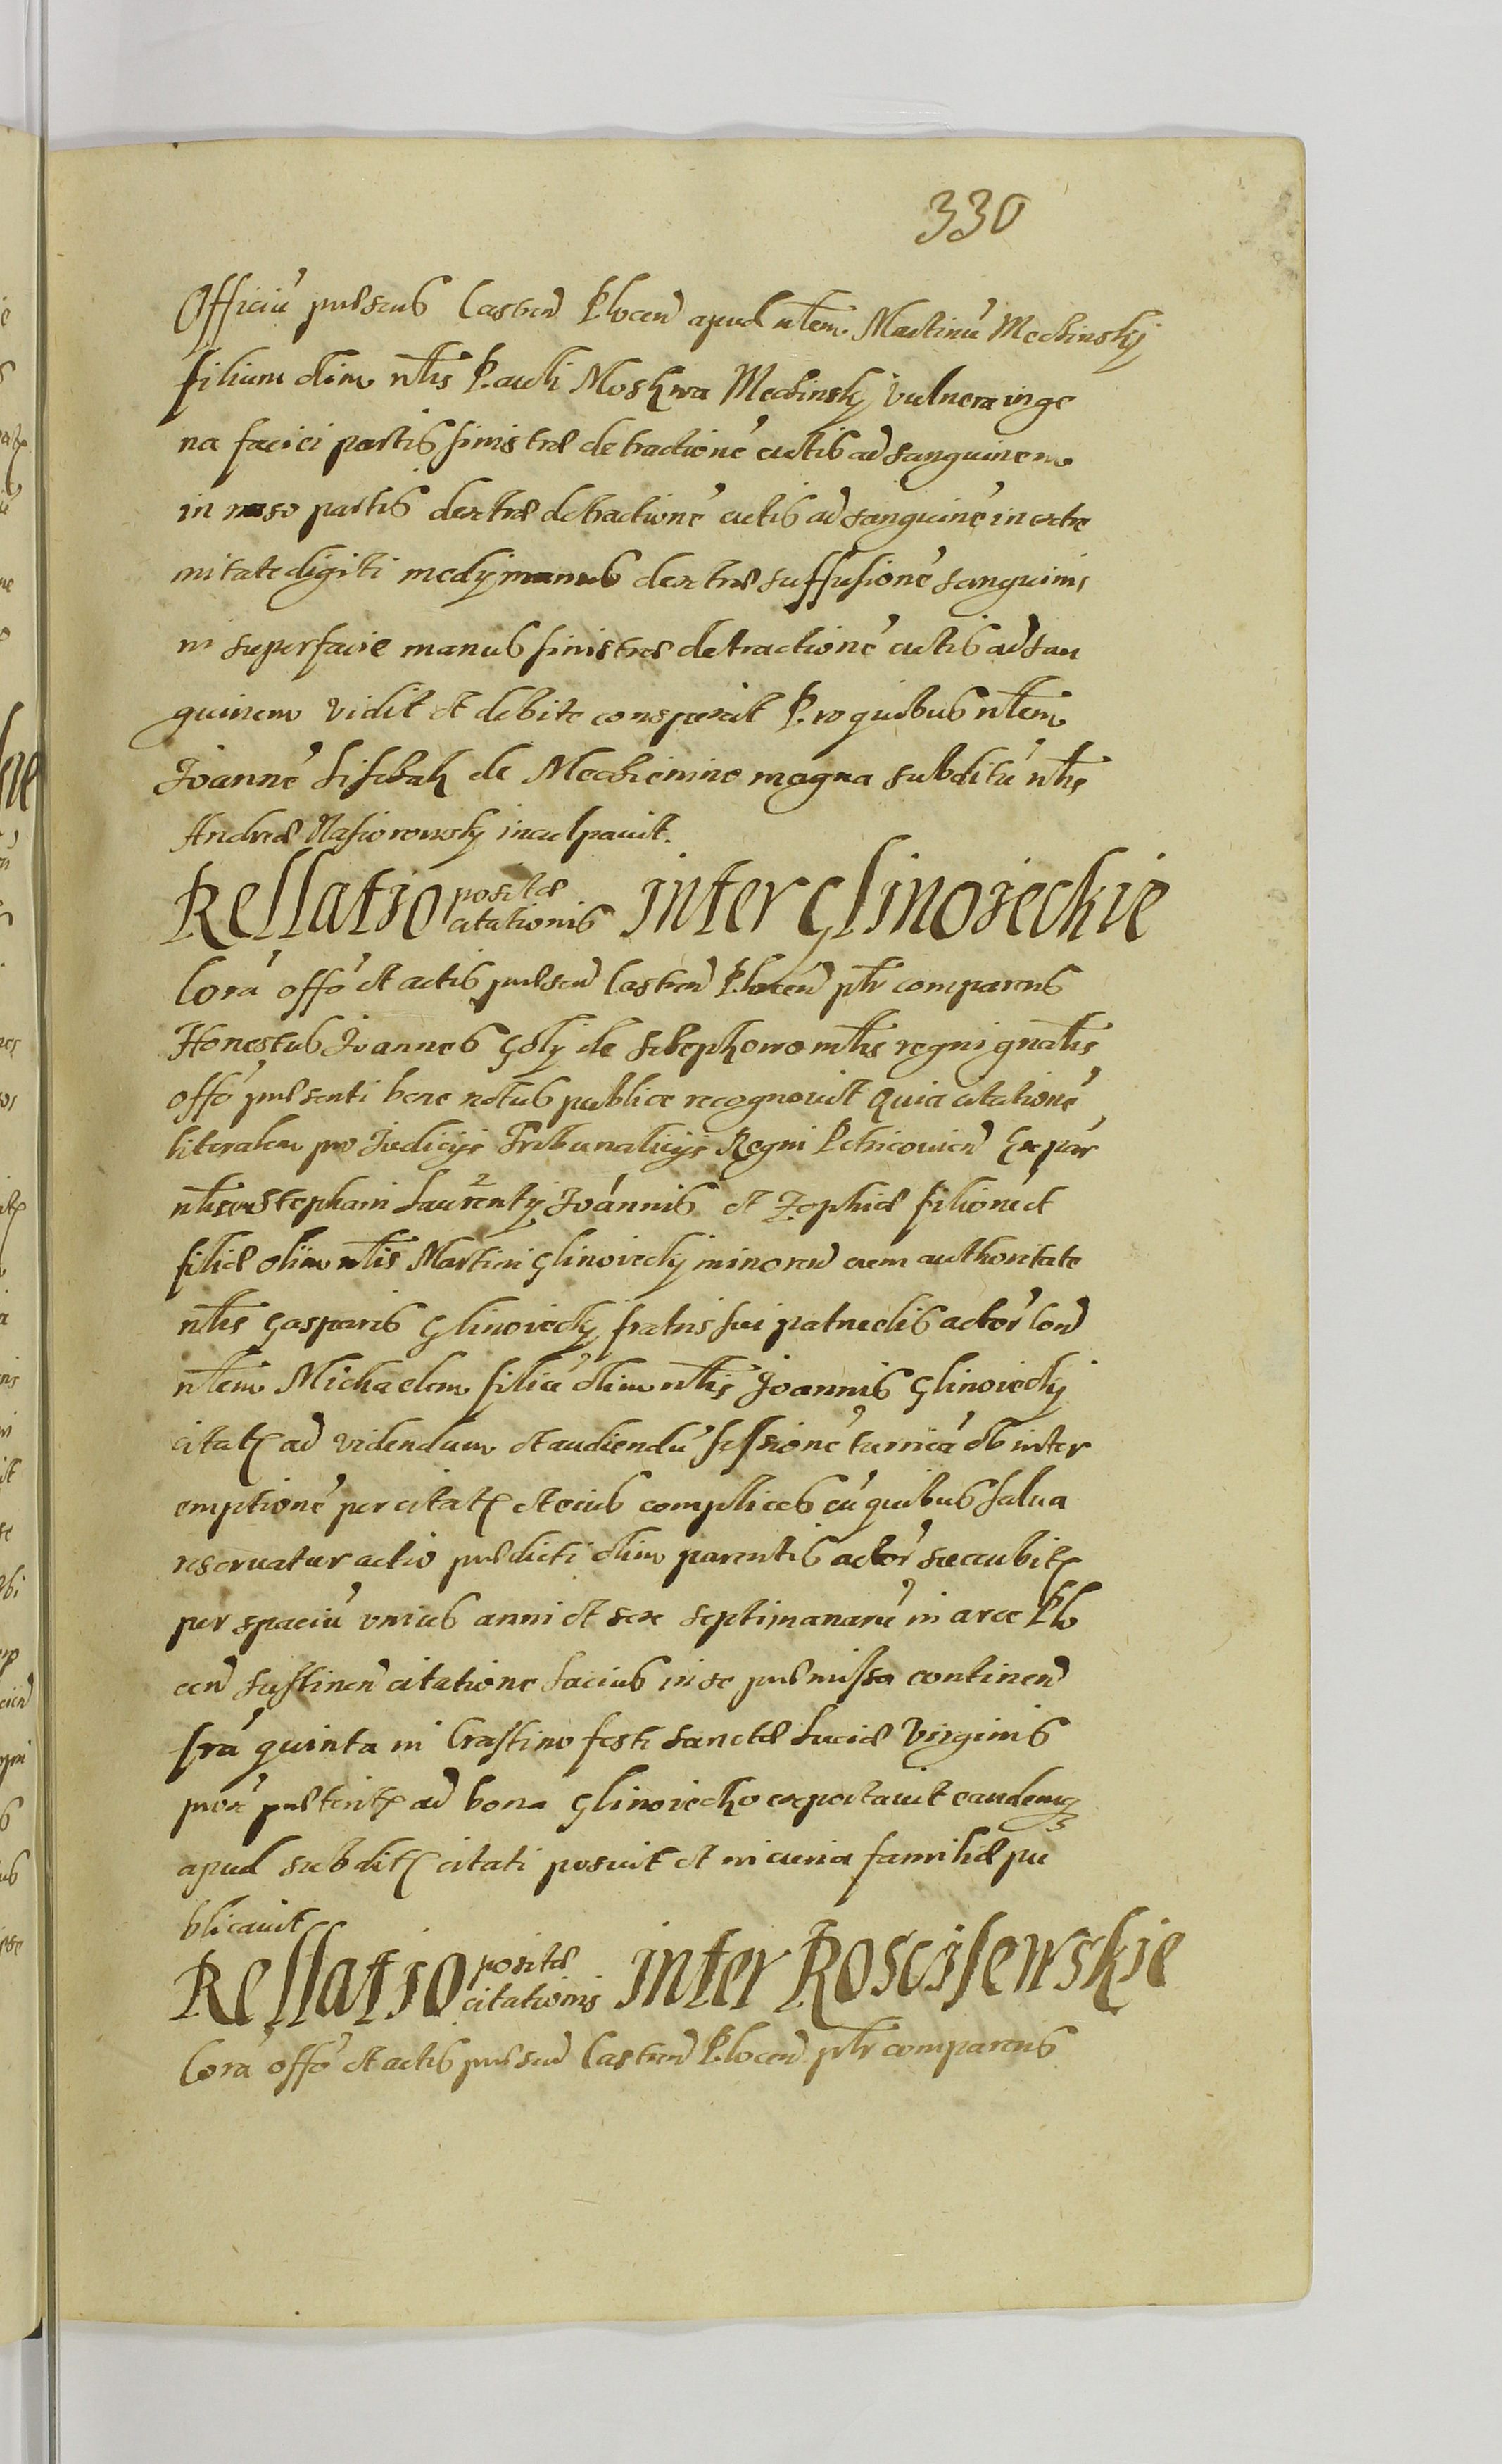 330
Officiu̇ pr̄sens Castren̄ Plocen̄ apud nb̄lem Martinu̇ Mechinsky
filium olim nb̄lis Pauli Moskwa Mechinsky vulnera in ge
na faciei partis sinistræ detractionė cutis ad sanguinem
in naso partis dextræ detractionė cutis ad sanguinė in extre
mitate digiti medÿ manus dextræ suffusionė sanguinis
in superfacie manus sinistræ detractionė cutis ad san
guinem vidit et debite conspexit Pro quibus nb̄lem
Joannė de magna subditu̇ nb̄lis
Andreæ inculpavit.
Rellatio positæ citationis inter Glinoieckie
Corȧ offȯ et actis præsen̄ Castren̄ Plocen̄ pb̄lr comparens
Honestus Joannes de mb̄lis regni gnālis
offȯ præsenti bene notus publice recognovit Quia citationė
literalem pro Judicijs Tribunalicijs Regni Petricovien̄ Ex par
nb̄lium Stephani Laurenty Joannis et Zophiæ filioru̇ et
filiæ olim nb̄lis Martini Glinoiecky minoren̄ cum authoritate
nb̄lis Gasparis Glinoiecky fratris sui patruelis actor̄ con̄
nb̄lem Michaelem filiu̇ olim nb̄lis Joannis Glinoiecky
citatꝭ ad videndum et audiendu̇ sessionė turricȧ ob inter
emptionė per citatꝭ et eius complices cu̇ quibus salva
reservatur actio prædicti olim parentis actor̄ succubitꝭ
per spaciu̇ vnius anni et sex septimanaru̇ in arce Plo
cen̄ sustinen̄ citatione lacius in se præmissa continen̄
frȧ quinta in Crastino festi Sanctæ Luciæ Virginis
prox̄ præteritꝭ ad bona Glinoiecko exportavit eandemqꝫ
apud subditꝭ citati posuit et in curia familiæ pu
blicavit
Rellatio positæ citationis inter Roscisewskie
Corȧ offȯ et actis præsen̄ Castren̄ Plocen̄ pb̄lr comparens